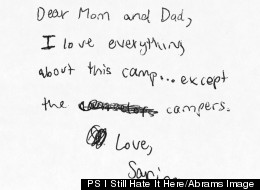 Dear Mom and Dad,
I love everything
about this camp... except
the campers.
Love,
PS I Still Hate It Here/Abrams Image